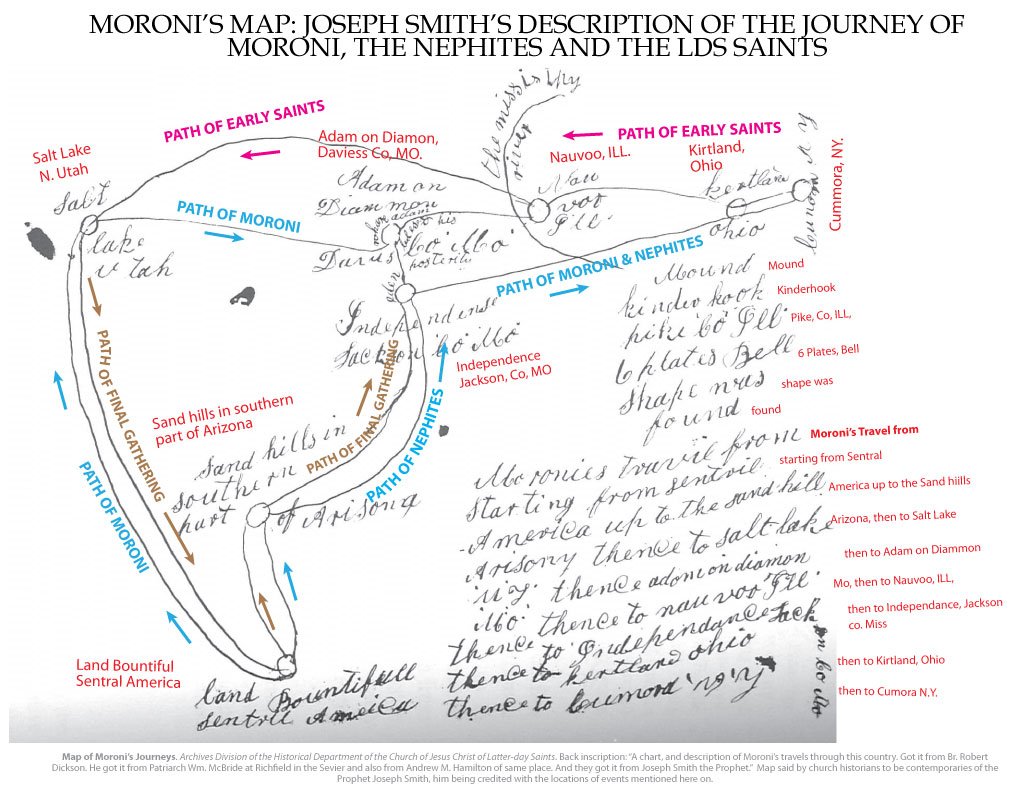 MORONI'S MAP: JOSEPH SMITH'S DESCRIPTION OF THE JOURNEY OF
MORONI, THE NEPHITES AND THE LDS SAINTS
the missisipy
river
PATH OF EARLY SAINTS
PATH OF EARLY SAINTS
Adam on Diamon,
Daviess Co, MO.
Nauvoo, ILL.
Kirtland,
Ohio
Cummora, NY.
Salt Lake
N. Utah
Salt
lake
Utah
PATH OF MORONI
Adam on
Diammon
adam
his
posterity
Davis Co Mo
Nau
voo
Ill
kertland
ohio
PATH OF MORONI & NEPHITES
eden
Independense
Jackson Co Mo
Independence
Jackson, Co, MO
Mound
Mound
kinderhook
Kinderhook
pike Co Ill
Pike, Co, ILL,
6 plates Bell
6 Plates, Bell
shape was
shape was
found
found
PATH OF FINAL GATHERING
PATH OF FINAL GATHERING
PATH OF NEPHITES
PATH OF MORONI
Sand hills in southern
part of Arizona
Sand hills in
southern
part of Arisona
Land Bountiful
Sentral America
land Bountifull
sentral America
Moronies travil from
Moroni's Travel from
starting from sentril
starting from Sentral
America up to the sand hills
America up to the Sand hiills
Arisony thence to salt lake
Arizona, then to Salt Lake
thence adom on diamon
then to Adam on Diammon
Mo thence to nauvoo Ill
Mo, then to Nauvoo, ILL,
thence to Independance Jackson Co Mo
then to Independance, Jackson
co. Miss
thence to kertland ohio
then to Kirtland, Ohio
thence to Cumora N.Y.
then to Cumora N.Y.
Map of Moroni's Journeys. Archives Division of the Historical Department of the Church of Jesus Christ of Latter-day Saints. Back inscription: "A chart, and description of Moroni's travels through this country. Got it from Br. Robert
Dickson. He got it from Patriarch Wm. McBride at Richfield in the Sevier and also from Andrew M. Hamilton of same place. And they got it from Joseph Smith the Prophet." Map said by church historians to be contemporaries of the
Prophet Joseph Smith, him being credited with the locations of events mentioned here on.